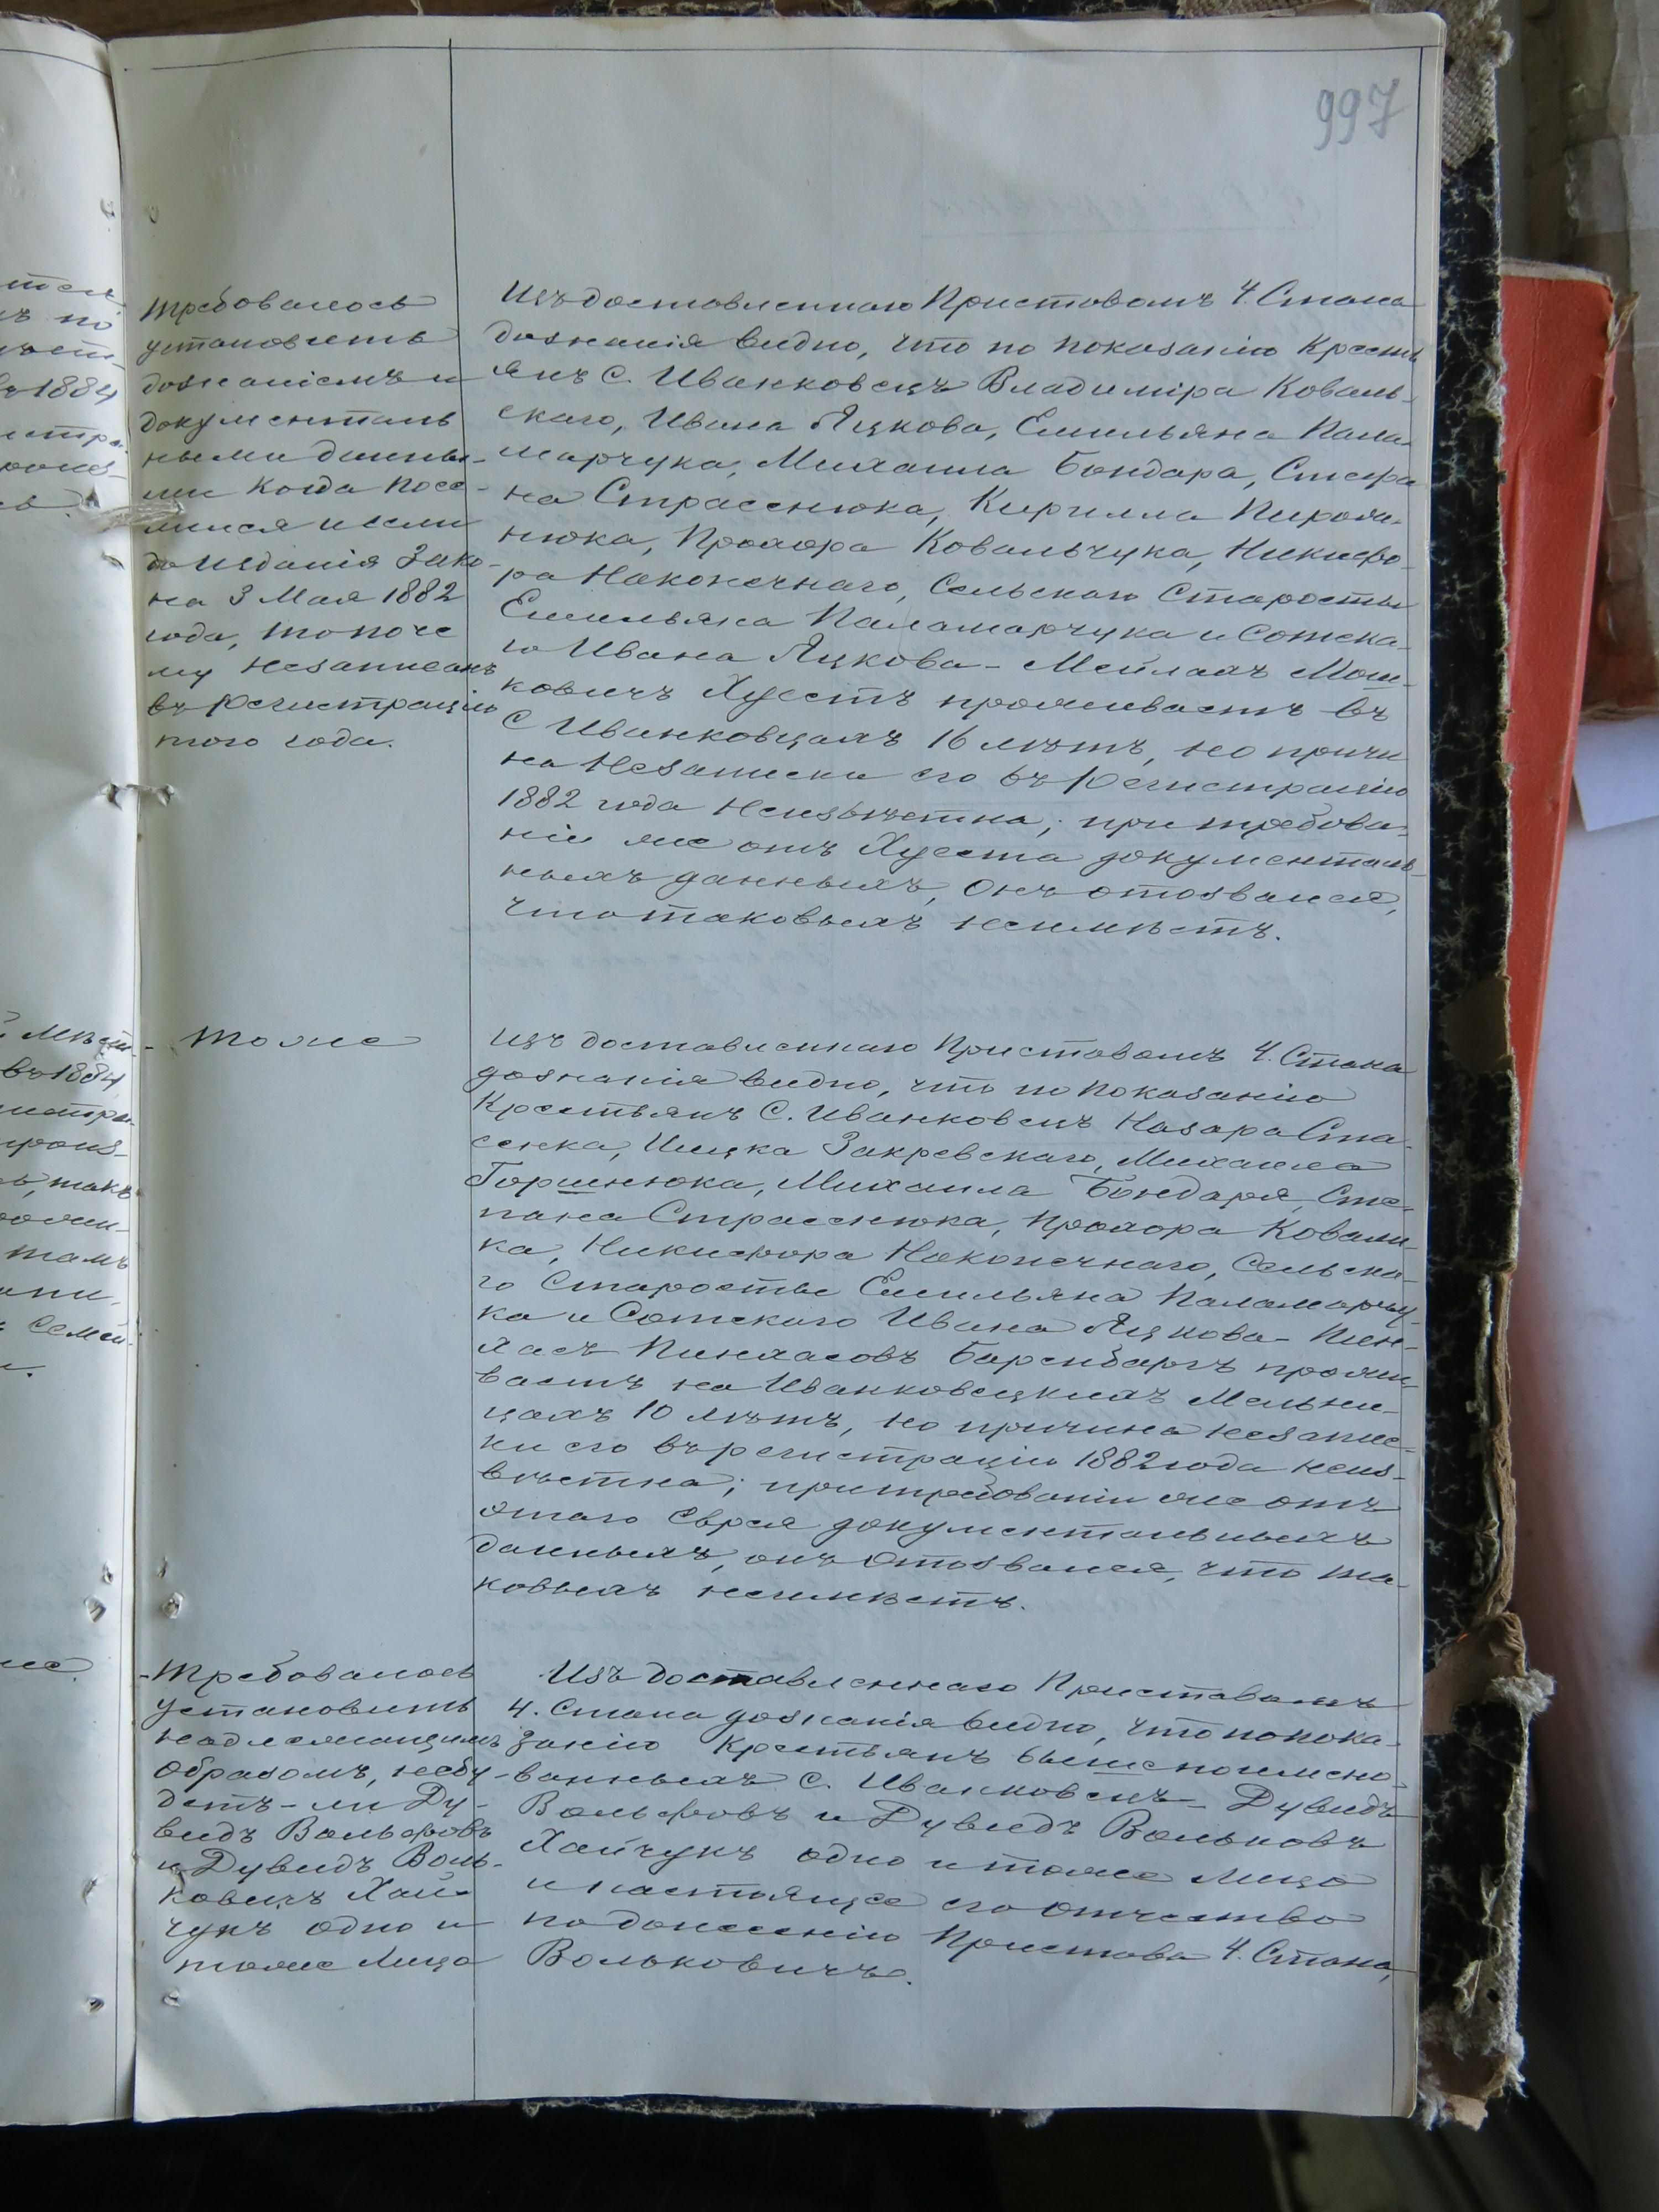 997
Требовалось
установить
дознаніемъ и
документаль
ными данны-
ми когда посе-
лился и если
до изданія Зако-
на 3 Мая 1882
года, то поче
му незаписанъ
въ регистрацію
того года.
Изъ доставленнаго Приставомъ 4. Стана
дознанія видно, что по показанію Кресть
янъ с. Иванковецъ Владиміра Коваль-
скаго, Ивана Яцкова, Емильяна Пала-
марчука, Михаила Бондара, Стефа
на Страссенюка, Кирилла Пирож-
нюка, Прохора Ковальчука, Никифо-
ра Наконечнаго, Сельскаго Старосты
Емильяна Паламарчука и Сотска-
го Ивана Яцкова - Мейлахъ Мош-
ковичъ Хуестъ проживаетъ въ
с Иванковцахъ 16 лѣтъ, но причи
на незаписки его въ Регистрацію
1882 года неизвѣстна; при требова-
ніи же отъ Хуеста документаль-
ныхъ данныхъ, онъ отозвался,
что таковыхъ неимѣетъ.
- Тоже
Изъ доставленнаго Приставомъ 4. Стана
дознанія видно, что по показанію
Крестьянъ с. Иванковецъ Назара Ста-
сенка, Ицка Закревскаго, Михаила
Горшенюка, Михаила Бондаря, Сте-
пана Страссенюка, Прохора Ковали-
ка, Никифора Наконечнаго, Сельска-
го Старосты Емильяна Паламарчу-
ка и Сотскаго Ивана Яцкова - Пин-
хасъ Пинхасовъ Баренбаргъ прожи-
ваетъ на Иванковецкихъ Мельни-
цахъ 10 лѣтъ, но причина незапис-
ки его въ регистрацію 1882 года неиз-
вѣстна; при требованіи же отъ
этаго Еврея документальныхъ
данныхъ, онъ отозвался, что та-
ковыхъ неимѣетъ.
- Требовалось
установить
надлежащимъ
образомъ, небу-
детъ-ли Ду-
видъ Вольфовъ
и Дувидъ Воль-
ковичъ Хай-
чукъ одно и
тоже лицо
Изъ доставленнаго Приставомъ
4. Стана дознанія видно, что по пока-
занію Крестьянъ вышепоимено-
ванныхъ с. Иванковецъ - Дувидъ
Вольфовъ и Дувидъ Вольковъ
Хайчукъ одно и тоже лицо
и настоящее его отчество
по донесенію Пристава 4. Стана,
Вольковичъ.